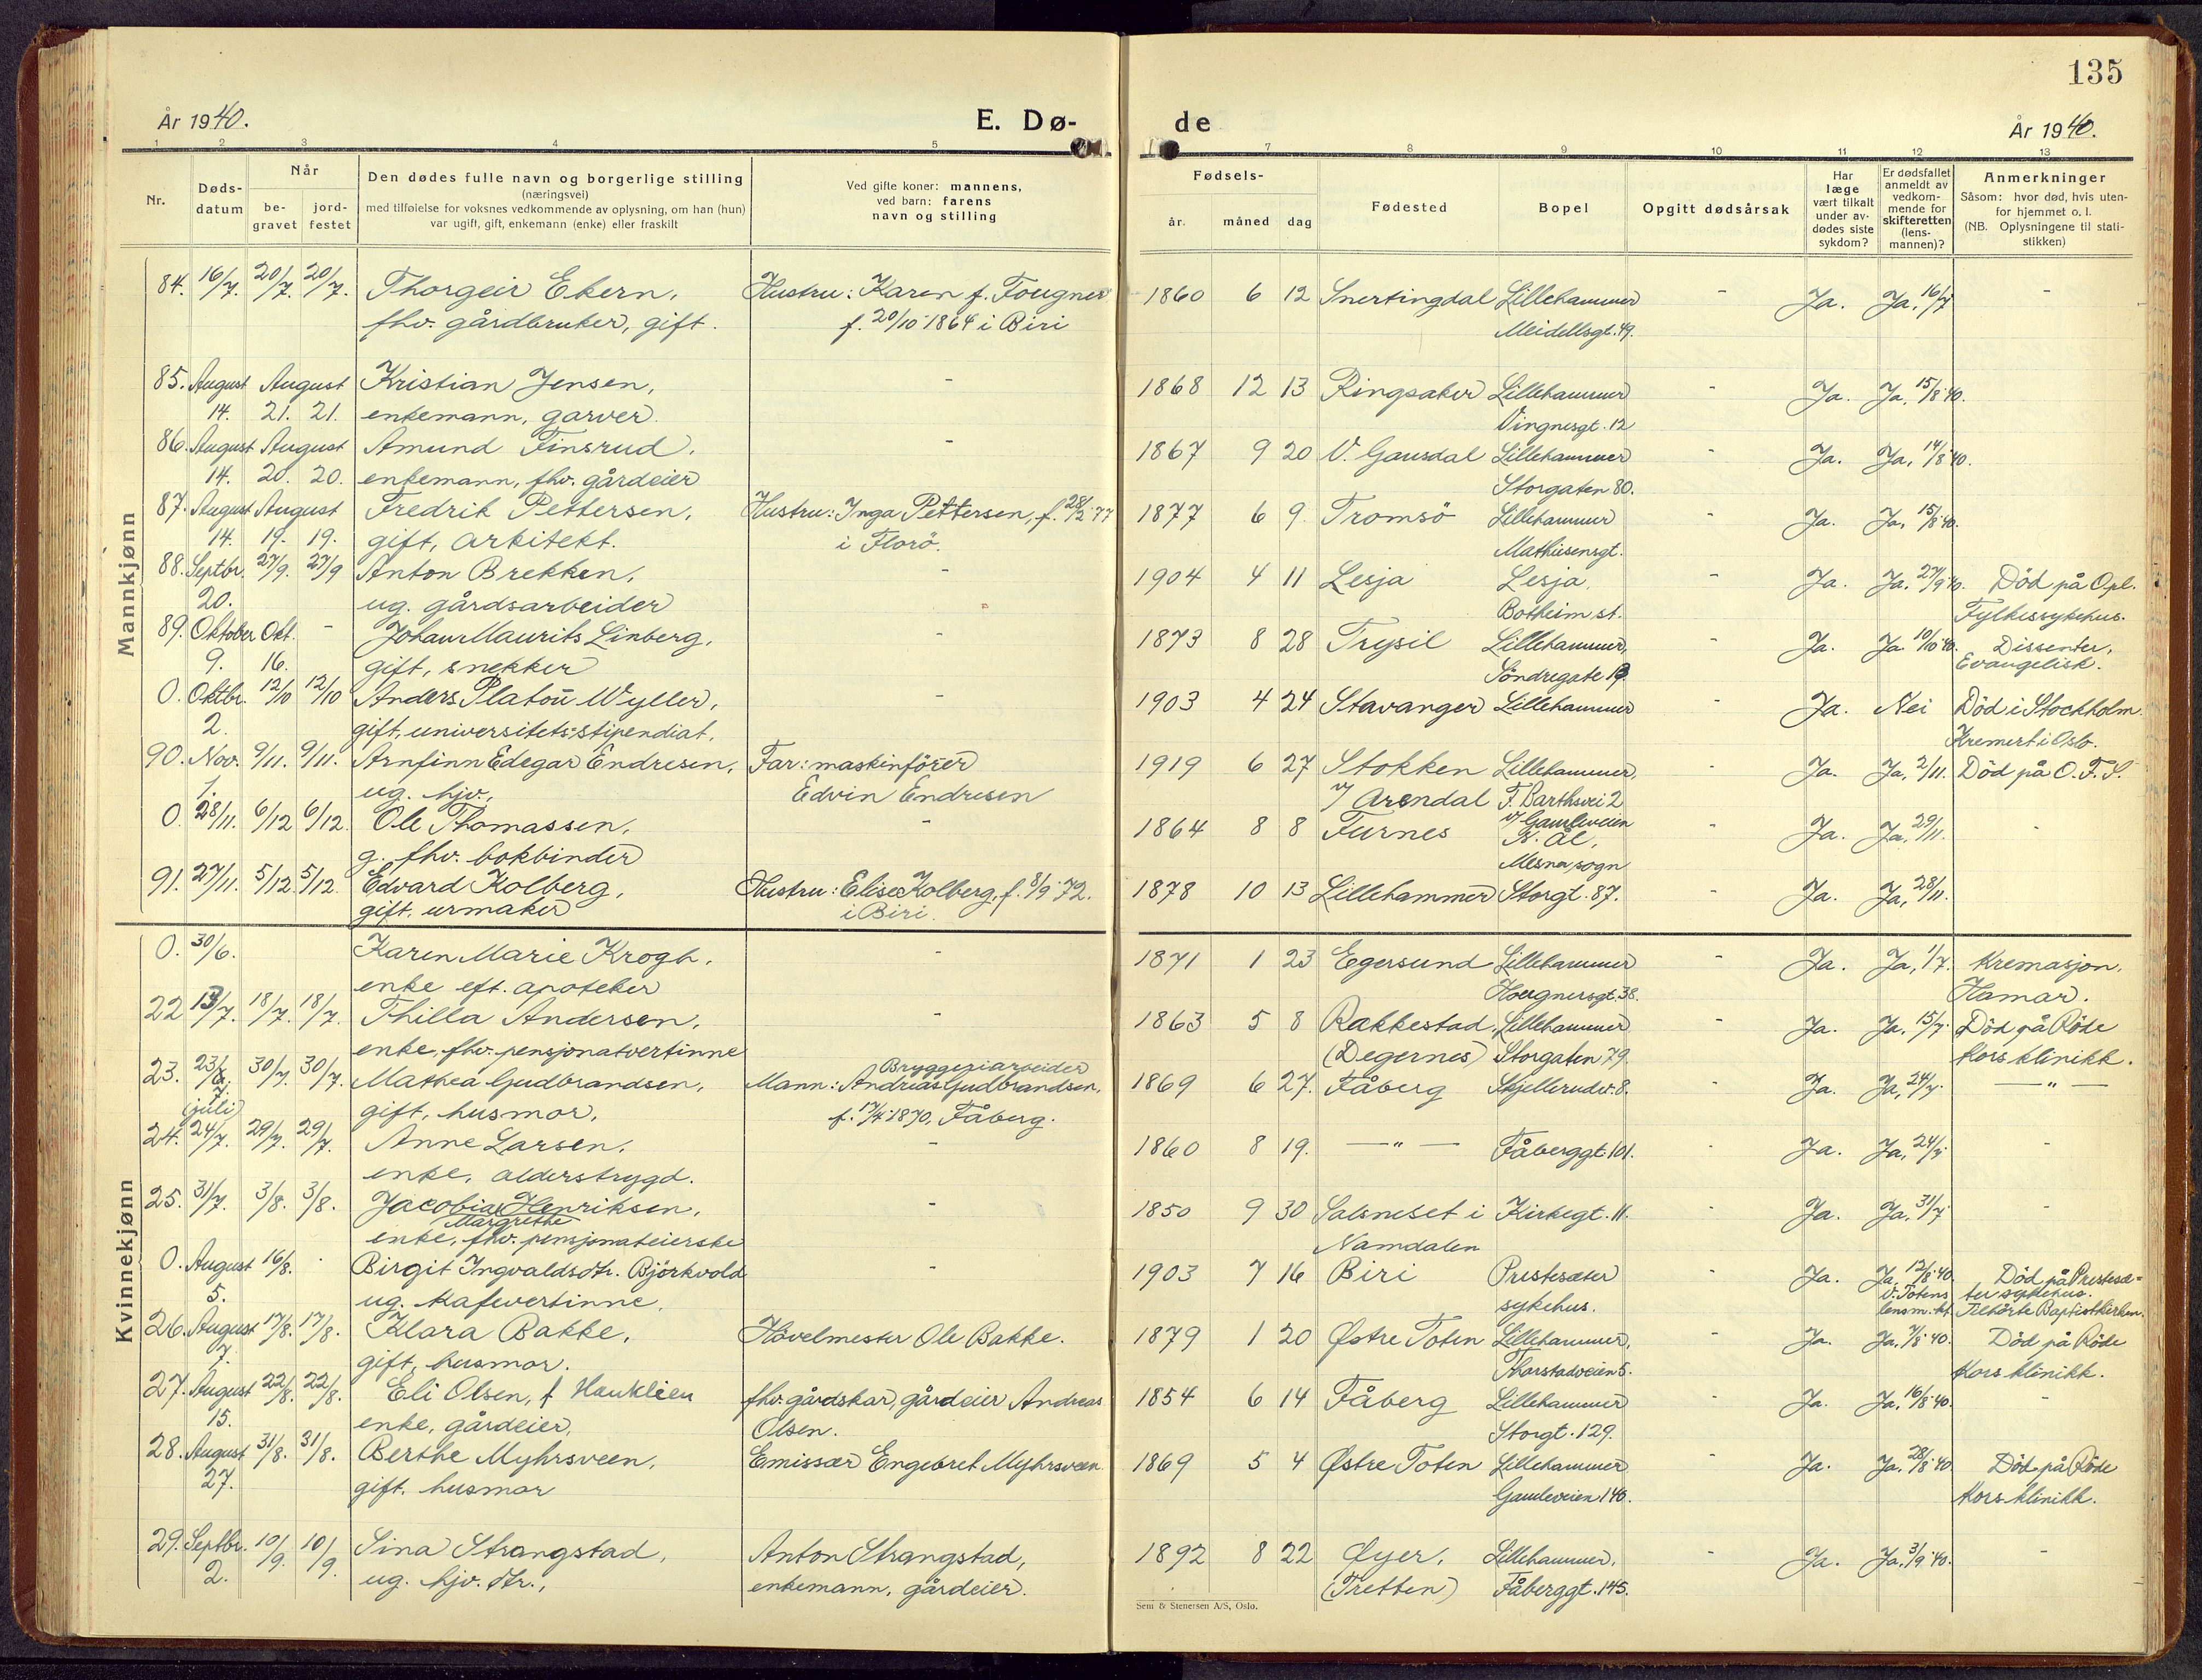 135
År 1940.
E. Dø-
de
År 1940.
1 2 3 4 5 7 8 9 10 11 12 13
Nr.
Døds-
datum
Når
be-
gravet
jord-
festet
Den dødes fulle navn og borgerlige stilling
(næringsvei)
med tilføielse for voksnes vedkommende av oplysning, om han (hun)
var ugift, gift, enkemann (enke) eller fraskilt
Ved gifte koner: mannens,
ved barn: farens
navn og stilling
Fødsels-
år. måned dag
Fødested
Bopel
Opgitt dødsårsak
Har
læge
vært tilkalt
under av-
dødes siste
sykdom?
Er dødsfallet
anmeldt av
vedkom-
mende for
skifteretten
(lens-
mannen)?
Anmerkninger
Såsom: hvor død, hvis uten-
for hjemmet o. l.
(NB. Oplysningene til stati-
stikken)
Mannkjønn
84. 16/7. 20/7. 20/7. Thorgeir Ekern, Hustru: Karen f. Fougner 1860 6 12 Snertingdal Lillehammer - Ja. Ja, 16/7 -
fhv. gårdbruker, gift. f. 20/10 1864 i Biri Meidellsgt. 49.
85. August August Kristian Jensen, - 1868 12 13 Ringsaker Lillehammer - Ja. Ja, 15/8 40.
14. 21. 21. enkemann, garver. Vingnesgt. 12
86. August August Amund Finsrud, - 1867 9 20 V. Gausdal Lillehammer - Ja. Ja, 14/8 40.
14. 20. 20. enkemann, fhv. gårdeier Storgaten 80.
87. August August Fredrik Pettersen, Hustru: Inga Pettersen, f. 28/2 77 1877 6 9. Tromsö Lillehammer - Ja. Ja, 15/8 40.
14. 19. 19. gift, arkitekt. i Florö. Mathiesensgt.
88. Septbr. 27/9. 27/9 Anton Brekken, - 1904 4 11 Lesja Lesja, - Ja. Ja, 27/9 40. Död på Opl.
20. ug. gårdsarbeider Botheim st. Fylkessykehus.
89. Oktober Okt. - Johan Maurits Linberg, - 1873 8 28 Trysil Lillehammer, - Ja. Ja. 10/10 40. Dissenter,
9. 16. gift, snekker Söndregate 19. Evangelisk.
0. Oktbr. 12/10 12/10 Anders Platou Wyller, - 1903 4 24 Stavanger Lillehammer - Ja. Nei Död i Stockholm
2. gift, universitets-stipendiat. Kremert i Oslo.
90. Nov. 9/11. 9/11. Arnfinn Edegar Endresen, Far: maskinförer 1919 6 27 Stokken Lillehammer, - Ja. Ja, 2/11. Död på O. F. S.
1. ug. hjv., Edvin Endresen v/ Arendal F. Barthsvei 2
0. 28/11. 6/12 6/12. Ole Thomassen, - 1864 8 8 Furnes v/ Gamleveien - Ja. Ja, 29/11. -
g. fhv. bokbinder N. Ål,
Mesna sogn
91. 27/11. 5/12. 5/12. Edvard Kolberg, Hustru: Elise Kolberg, f. 8/9 72. 1878 10 13 Lillehammer Storgt. 87. - Ja. Ja, 28/11.
gift, urmaker i Biri.
Kvinnekjønn
0. 30/6. Karen Marie Krogh, - 1871 1 23 Egersund Lillehammer - Ja. Ja, 1/7. Kremasjon,
enke eft. apoteker 38. Hamar.
22 13/7. 18/7. 18/7. Thilla Andersen, - 1863 5 8 Rakkestad Lillehammer - Ja. Ja, 15/7. Död på Röde
enke, fhv. pensjonatvertinne (Degernes) Storgaten 79. Kors klinikk.
23. 23/7. 30/7. 30/7. Mathea Gudbrandsen, Bryggeriarbeider
Mann: Andreas Gudbrandsen, 1869 6 27. Fåberg Skjellerudv. 8. - Ja. Ja, 24/7. — " —
(juli) gift, husmor, f. 17/4 1870, Fåberg.
24. 24/7. 29/7. 29/7. Anne Larsen, - 1860 8 19. — " — Fåberggt. 101. - Ja. Ja, 24/7. -
enke, alderstrygd.
25. 31/7. 3/8. 3/8. Jacobia Henriksen, - 1850 9 30 Salsneset i Kirkegt. 11. - Ja. Ja, 31/7 -
Margrethe Namdalen
enke, fhv. pensjonateierske
0. August 16/8. - Birgit Ingvaldsdtr. Björkvold - 1903 7 16 Biri Prestesæter - Ja. Ja, 12/8 40 Död på Prestesæ-
5. ug. kafevertinne, sykehus. V. Totens ter sykehus.
lensm. kt. Tilhörte Baptistkirken.
26. August 17/8. 17/8. Klara Bakke, Hövelmester Ole Bakke. 1879 1 20 Østre Toten Lillehammer, - Ja. Ja, 7/8 40. Död på Röde
7. gift, husmor. Thorstadveien 5. Kors klinikk.
27. August 22/8. 22/8. Eli Olsen, f Hauklien fhv. gårdskar, gårdeier Andreas 1854 6 14 Fåberg Lillehammer - Ja. Ja, 16/8 40. -
15. enke, gårdeier, Olsen. Storgt. 129.
28. August 31/8. 31/8. Berthe Myhrsveen, Emissær Engebret Myhrsveen 1869 5 4 Østre Toten Lillehammer - Ja. Ja, 28/8 40 Död på Röde
27. gift. husmor Gamleveien 140. Kors klinikk.
29. Septbr. 10/9. 10/9. Sina Strangstad, Anton Strangstad, 1892 8 22 Øyer, Lillehammer, - Ja. Ja, 3/9 40. -
2. ug. hjv. dtr., enkemann, gårdeier. (Tretten) Fåberggt. 145.
Sem & Stenersen A/S, Oslo.